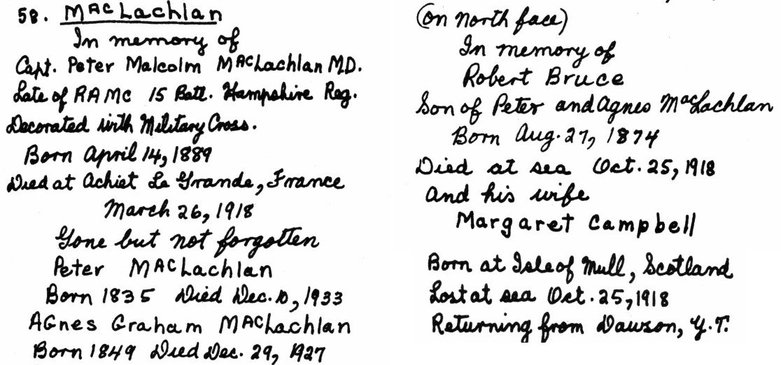 58. MacLachlan
In memory of
Capt. Peter Malcolm MacLachlan M.D.
Late of RAMC 15 Batt. Hampshire Reg.
Decorated with Military Cross.
Born April 14, 1889
Died at Achiet Le Grande, France
March 26, 1918
Gone but not forgotten
Peter MacLachlan
Born 1835 Died Dec. 10, 1933
Agnes Graham MacLachlan
Born 1849 Died Dec. 29, 1927
(on North face)
In memory of
Robert Bruce
Son of Peter and Agnes MacLachlan
Born Aug. 27, 1874
Died at sea Oct. 25, 1918
And his wife
Margaret Campbell
Born at Isle of Mull, Scotland
Lost at sea Oct. 25, 1918
Returning from Dawson, Y.T.